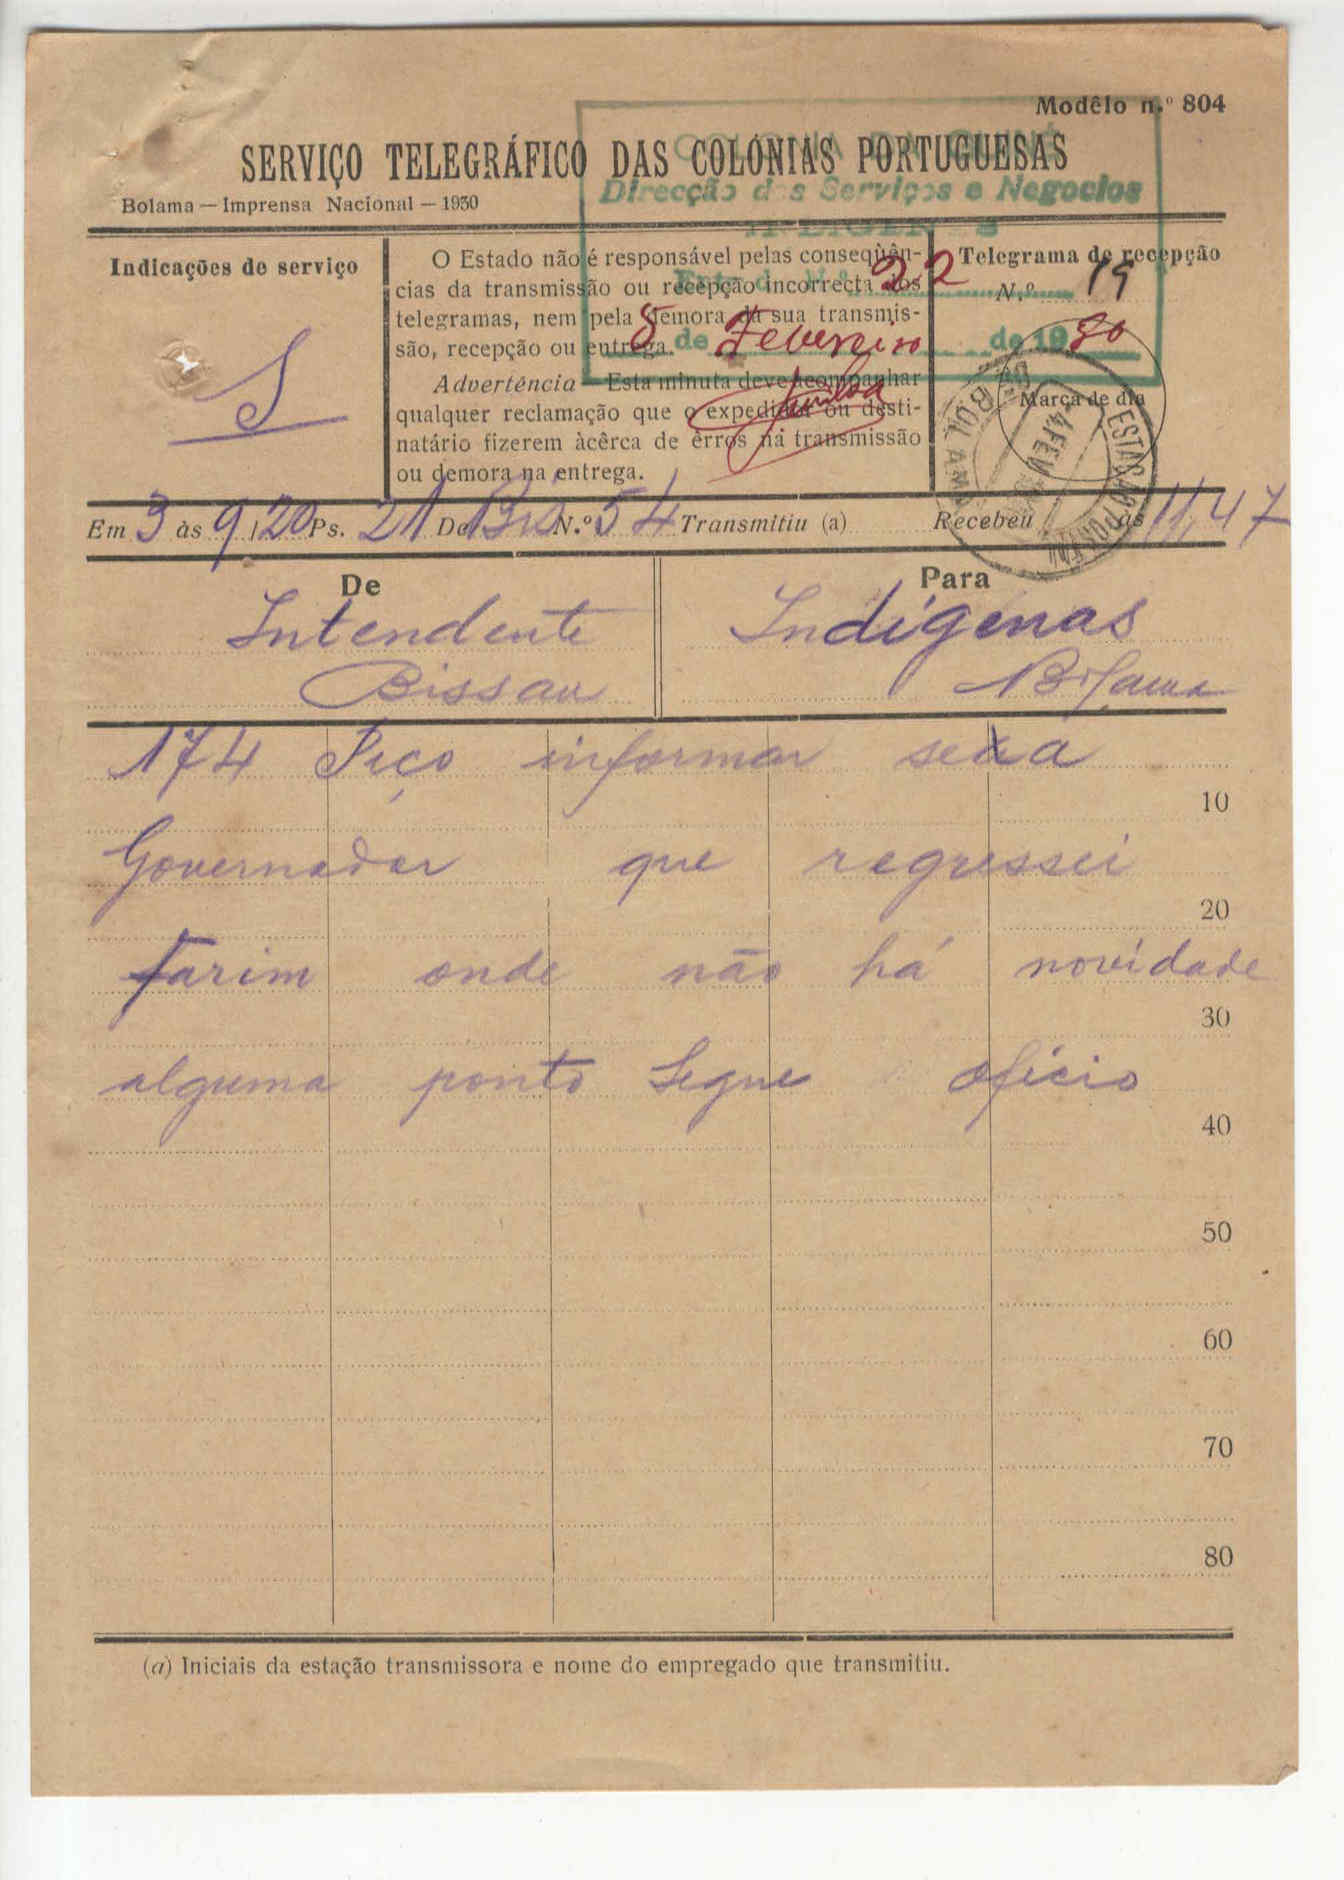 Modêlo n.º 804
SERVIÇO TELEGRÁFICO DAS COLÓNIAS PORTUGUESAS
Direcção dos Serviços e Negocios
Bolama — Imprensa Nacional — 1930
Indicações de serviço
S
O Estado não é responsável pelas conseqüên-
cias da transmissão ou recepção incorrecta dos
telegramas, nem pela demora da sua transmis-
são, recepção ou entrega.
Advertência — Esta minuta deve acompanhar
qualquer reclamação que o expedidor ou desti-
natário fizerem àcêrca de êrros na transmissão
ou demora na entrega.
22
5 de Fevereiro de 1930
Telegrama de recepção
N.º 19
Marca de dia
4 FEV
BOLAMA
Em 3 às 9,20 Ps. 21 De Bis N.º 54 Transmitiu (a) Recebeu às 11,47
De
Intendente
Bissau
Para
Indigenas
Bolama
174 Peço informar sexa
10
Governador que regressei
20
Farim onde não há novidade
30
alguma ponto Segue oficio
40
50
60
70
80
(a) Iniciais da estação transmissora e nome do empregado que transmitiu.